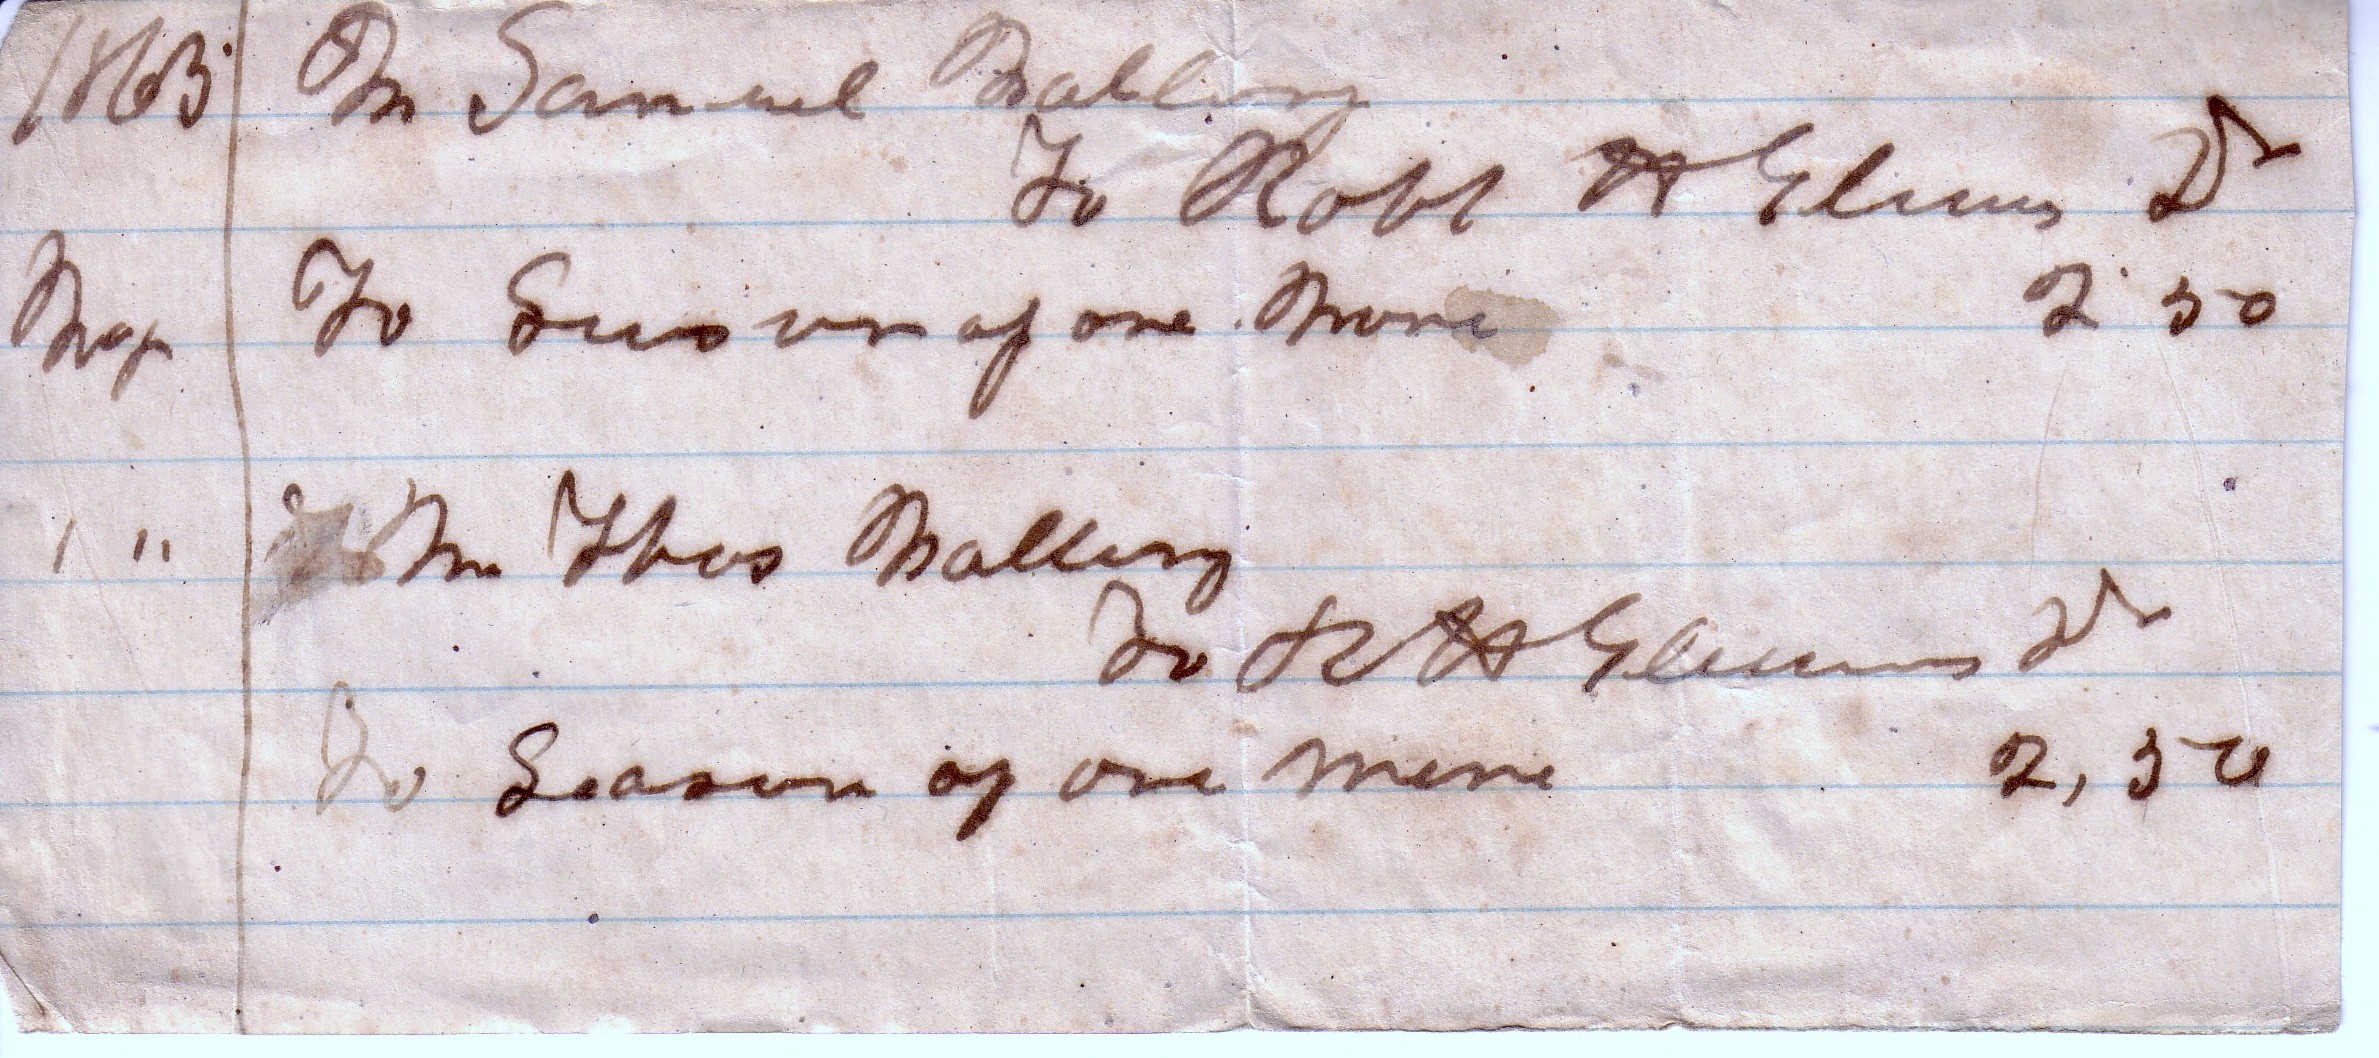 1863 Mr Samuel
To Robt H Glenns Dr
May To Season of one Mare 2 50
" " Mr Thos Balling
To R H Glenns Dr
To Season of one mare 2,50